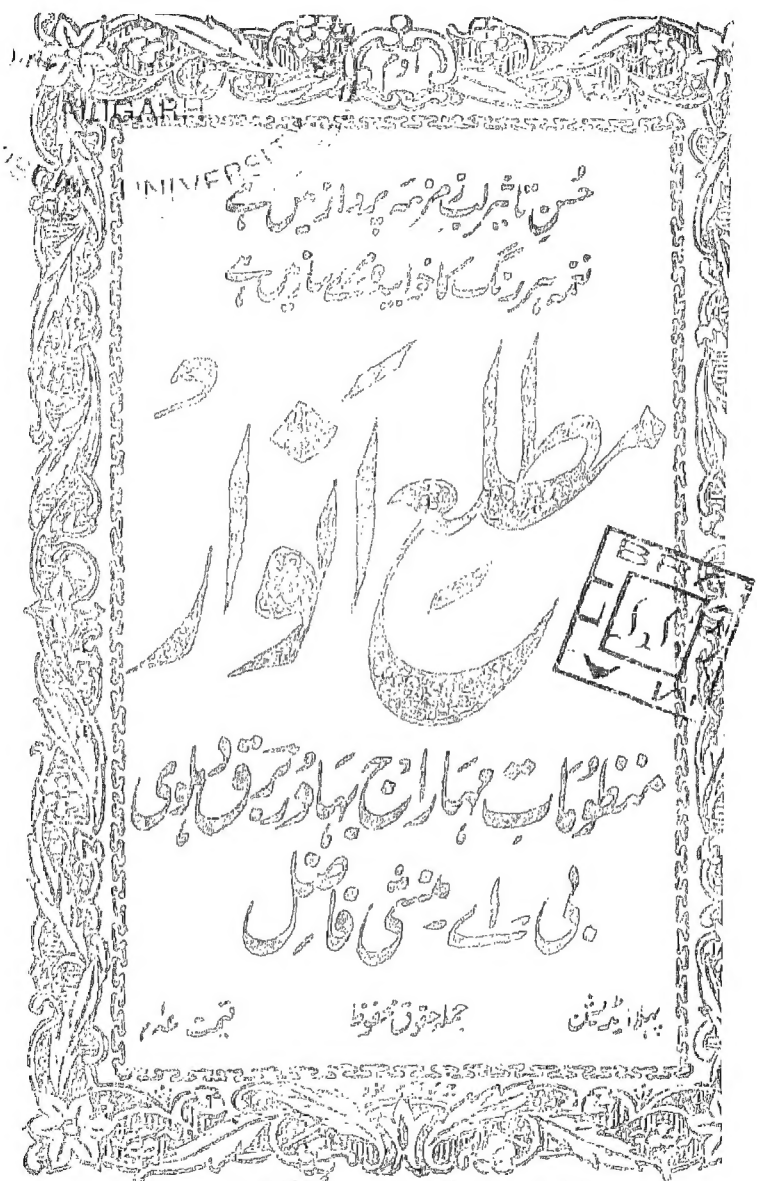 اوم
ALIGARH
UNIVERSITY
حُسنِ تاثیر لبِ زمزمہ پرداز میں ہے
نغمہ ہر رنگ کا خوابیدہ مرے ساز میں ہے
مطلع انوار
منظومات مہاراج بہادر برق دہلوی
بی۔ اے منشی فاضل
پہلا ایڈیشن
جملہ حقوق محفوظ
قیمت